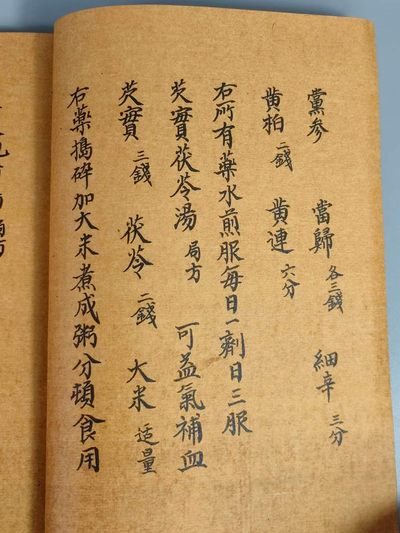 黨参 當歸各三錢 細辛三分
黄柏二錢 黄連六分
右所有藥水煎服每日一劑日三服
芡實茯苓湯 局方 可益氣補血
芡實三錢 茯苓二錢 大米适量
右藥搗碎加大米煮成粥分頓食用